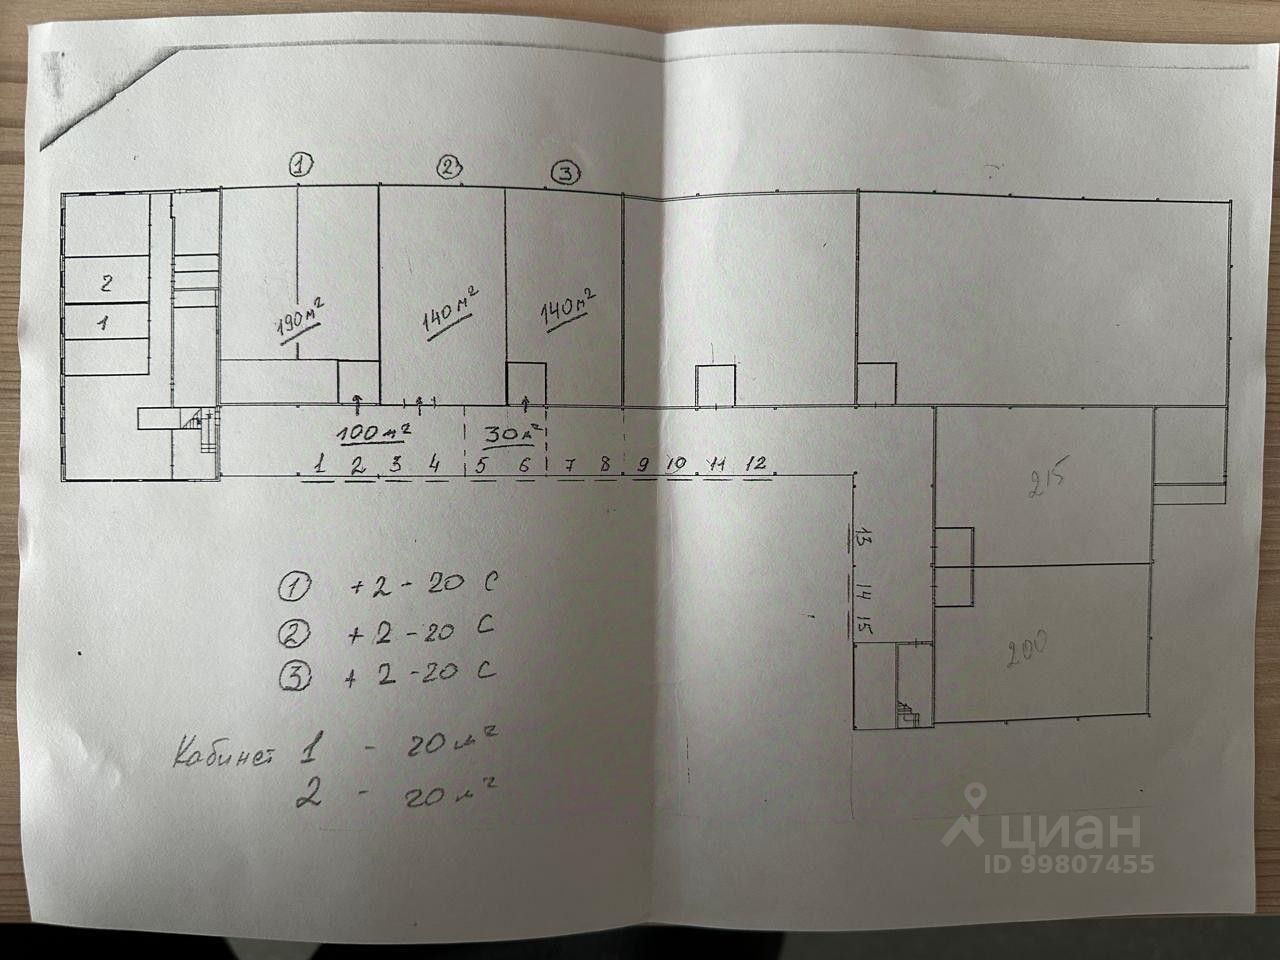 1 2 3
2
1
190 м²
140 м²
140 м²
100 м² 30 м²
1 2 3 4 5 6 7 8 9 10 11 12
215
13
14
15
200
1 +2 - 20 С
2 +2 - 20 С
3 + 2 - 20 С
Кабинет 1 - 20 м²
2 - 20 м²
циан
ID 99807455